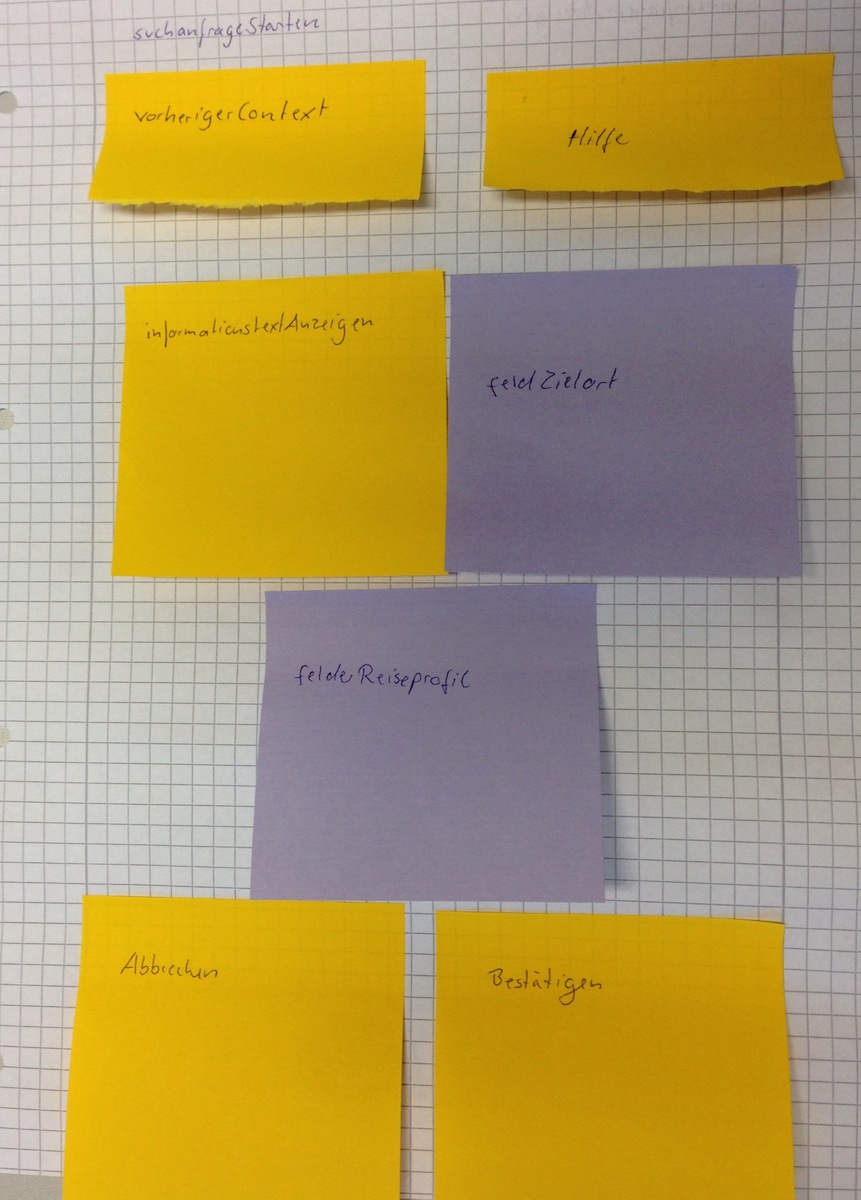 suchanfrageStarten
vorherigerContext
Hilfe
informationstextAnzeigen
feldZielort
felderReiseprofil
Abbrechen
Bestätigen